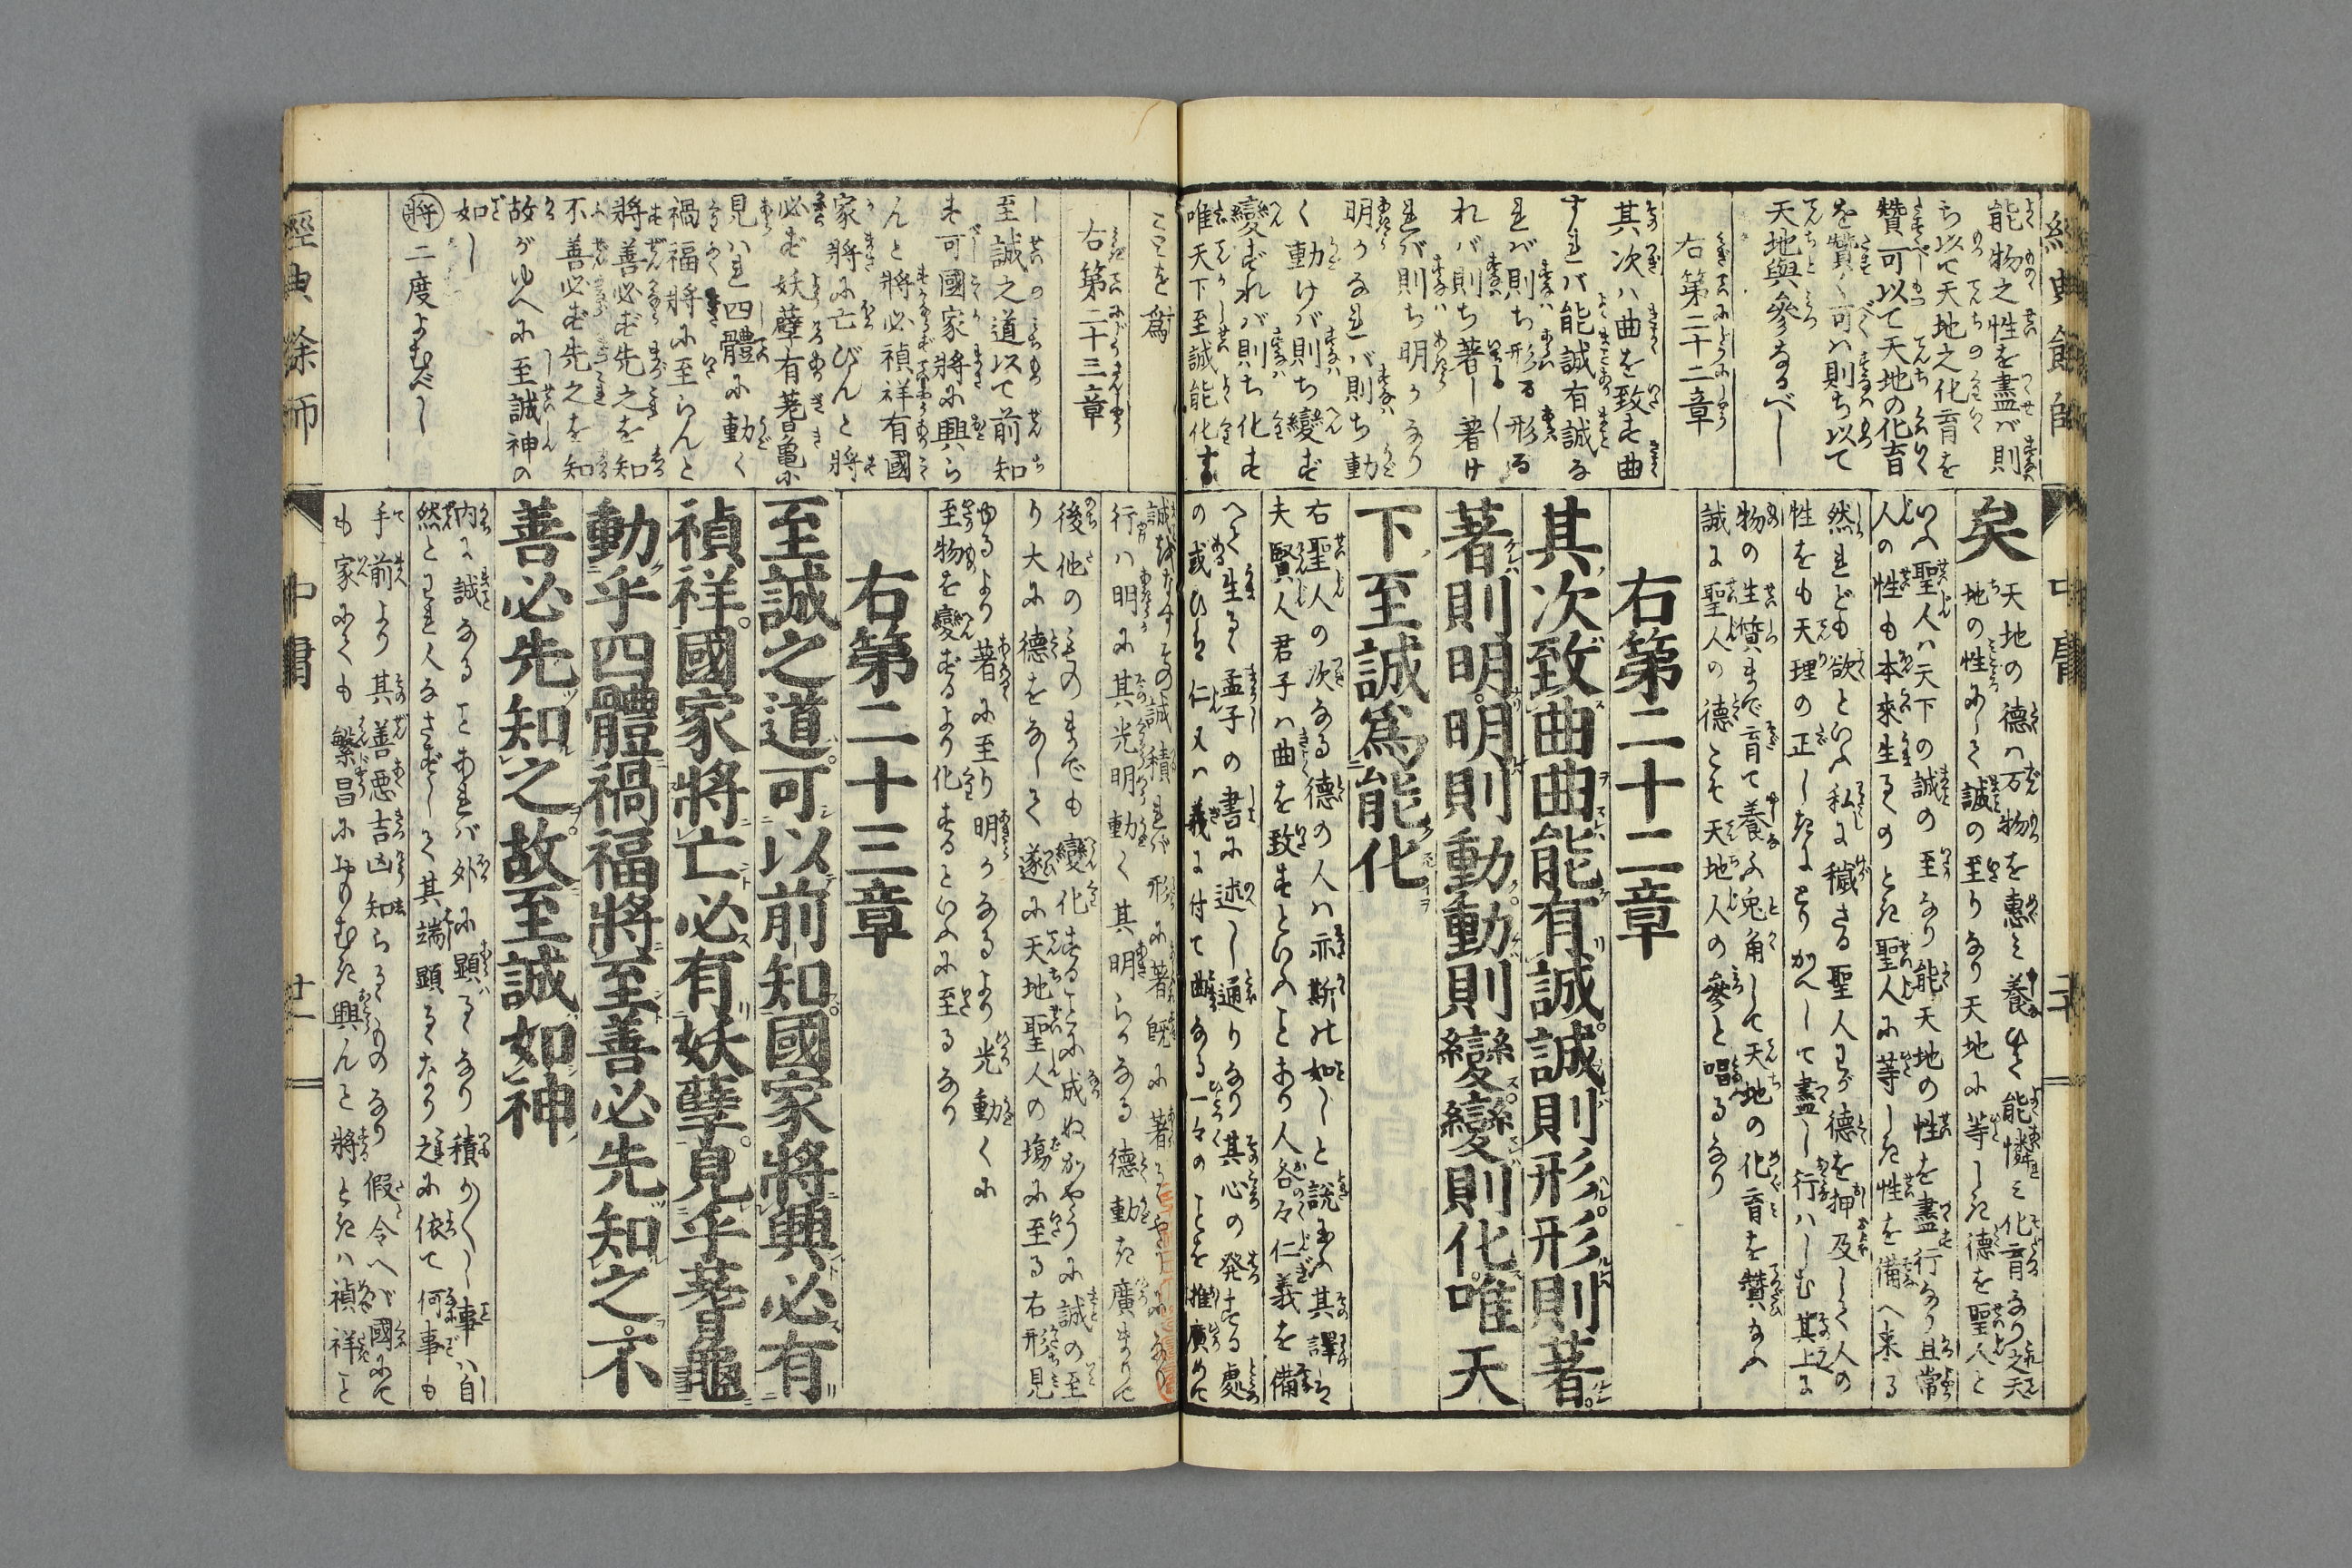 經典餘師
能物之性を盡ば則
ち以て天地之化育を
贊可以て天地の化育
を贊く可ハ則ち以て
天地與參なるべし
右第二十二章
其次ハ曲を致す曲
すれバ能誠有誠な
れバ則ち形る形る
れバ則ち著し著け
れバ則ち明なり
明かなれバ則ち動
く動けバ則ち變ず
變ずれバ則ち化す
唯天下至誠能化す
中庸
矣
天地の德ハ万物を惠ミ養ひ能憐ミ化育なり之天
地の性にして誠の至りなり天地に等しき德を聖人と
いふ聖人ハ天下の誠の至なり能天地の性を盡行なり且常
人の性も本來生るのとき聖人に等しき性を備へ来る
然れども欲といふ私に穢さる聖人わが德を押及して人の
性をも天理の正しきにとりかへして盡し行ハしむ其上に
物の生質まで育て養ふ兎角して天地の化育を贊なふ
誠に聖人の德こそ天地人の參と唱るなり
右第二十二章
其次致曲曲能有誠誠則形形則著
著則明明則動動則變變則化唯天
下至誠爲能化
右聖人の次なる德の人ハ亦斯の如しと說給ふ其譯ハ
夫賢人君子ハ曲を致すといふことあり人各々仁義を備
へて生る孟子の書に述し通りなり其心の発する處
の或ひハ仁又ハ義に付て曲なる一々のことを推廣めて
ことを爲
右第二十三章
至誠之道以て前知
す可國家將に興ら
んと將必禎祥有國
家將に亡びんと將
必ず妖孽有蓍龜に
見ハれ四體に動く
禍福將に至らんと
將善必ず先之を知
不善必ず先之を知
故がゆへに至誠神の
如し
將二度よむべし
行ハ明に其光明動く其明らかなる德動き廣まりて
後他のものまでも變化することに成ぬかやうに誠の至
り大に德をなして遂に天地聖人の場に至る右形見
ゆるより著に至り明かなるより光動くに
至物を變ずるより化するといふに至るなり
右第二十三章
至誠之道可以前知國家將興必有
禎祥國家將亡必有妖孽見乎蓍龜
動乎四體禍福將至善必先知之不
善必先知之故至誠如神
内に誠あることあれバ外に顯るなり積かくし事ハ自
然とわれ人なさずして其端顯るなり之に依て何事も
手前より其善悪吉凶知らるゝものなり假令へば國にて
も家にても繁昌におもむき興んと將ときハ禎祥こと
經典餘師
中庸
廿一